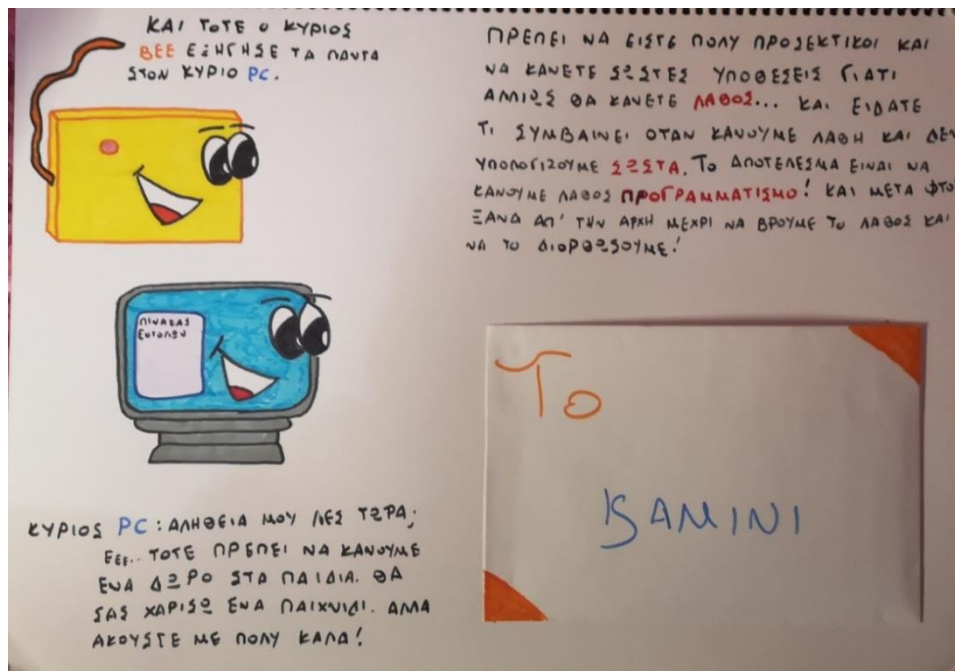 ΚΑΙ ΤΟΤΕ Ο ΚΥΡΙΟΣ
BEE ΕΞΗΓΗΣΕ ΤΑ ΠΑΝΤΑ
ΣΤΟΝ ΚΥΡΙΟ PC.
ΠΙΝΑΚΑΣ
ΕΝΤΟΛΩΝ
ΚΥΡΙΟΣ PC: ΑΛΗΘΕΙΑ ΜΟΥ ΛΕΣ ΤΩΡΑ;
ΕΕΕ.. ΤΟΤΕ ΠΡΕΠΕΙ ΝΑ ΚΑΝΟΥΜΕ
ΕΝΑ ΔΩΡΟ ΣΤΑ ΠΑΙΔΙΑ. ΘΑ
ΣΑΣ ΧΑΡΙΣΩ ΕΝΑ ΠΑΙΧΝΙΔΙ. ΑΛΛΑ
ΑΚΟΥΣΤΕ ΜΕ ΠΟΛΥ ΚΑΛΑ!
ΠΡΕΠΕΙ ΝΑ ΕΙΣΤΕ ΠΟΛΥ ΠΡΟΣΕΚΤΙΚΟΙ ΚΑΙ
ΝΑ ΚΑΝΕΤΕ ΣΩΣΤΕΣ ΥΠΟΘΕΣΕΙΣ ΓΙΑΤΙ
ΑΛΛΙΩΣ ΘΑ ΚΑΝΕΤΕ ΛΑΘΟΣ... ΚΑΙ ΕΙΔΑΤΕ
ΤΙ ΣΥΜΒΑΙΝΕΙ ΟΤΑΝ ΚΑΝΟΥΜΕ ΛΑΘΗ ΚΑΙ ΔΕΝ
ΥΠΟΛΟΓΙΖΟΥΜΕ ΣΩΣΤΑ. ΤΟ ΑΠΟΤΕΛΕΣΜΑ ΕΙΝΑΙ ΝΑ
ΚΑΝΟΥΜΕ ΛΑΘΟΣ ΠΡΟΓΡΑΜΜΑΤΙΣΜΟ! ΚΑΙ ΜΕΤΑ ΦΤΟΥ
ΞΑΝΑ ΑΠ' ΤΗΝ ΑΡΧΗ ΜΕΧΡΙ ΝΑ ΒΡΟΥΜΕ ΤΟ ΛΑΘΟΣ ΚΑΙ
ΝΑ ΤΟ ΔΙΟΡΘΩΣΟΥΜΕ!
Το
ΚΑΜΙΝΙ